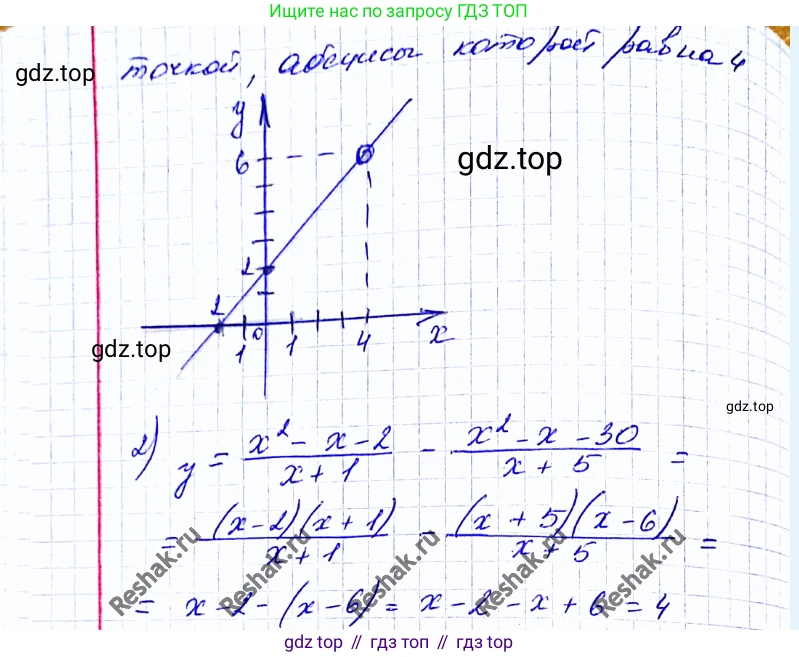 Ищите нас по запросу ГДЗ ТОП
точкой, абсцисса которой равна 4
gdz.top
y
6
gdz.top
2
2
gdz.top
1 0 1 4 x
gdz.top
2) y = \frac{x^2 - x - 2}{x + 1} - \frac{x^2 - x - 30}{x + 5} =
= \frac{(x-2)(x+1)}{x+1} - \frac{(x+5)(x-6)}{x+5} =
Reshak.ru Reshak.ru Reshak.ru Reshak.ru Reshak.ru
= x - 2 - (x - 6) = x - 2 - x + 6 = 4
gdz top // гдз топ // gdz top